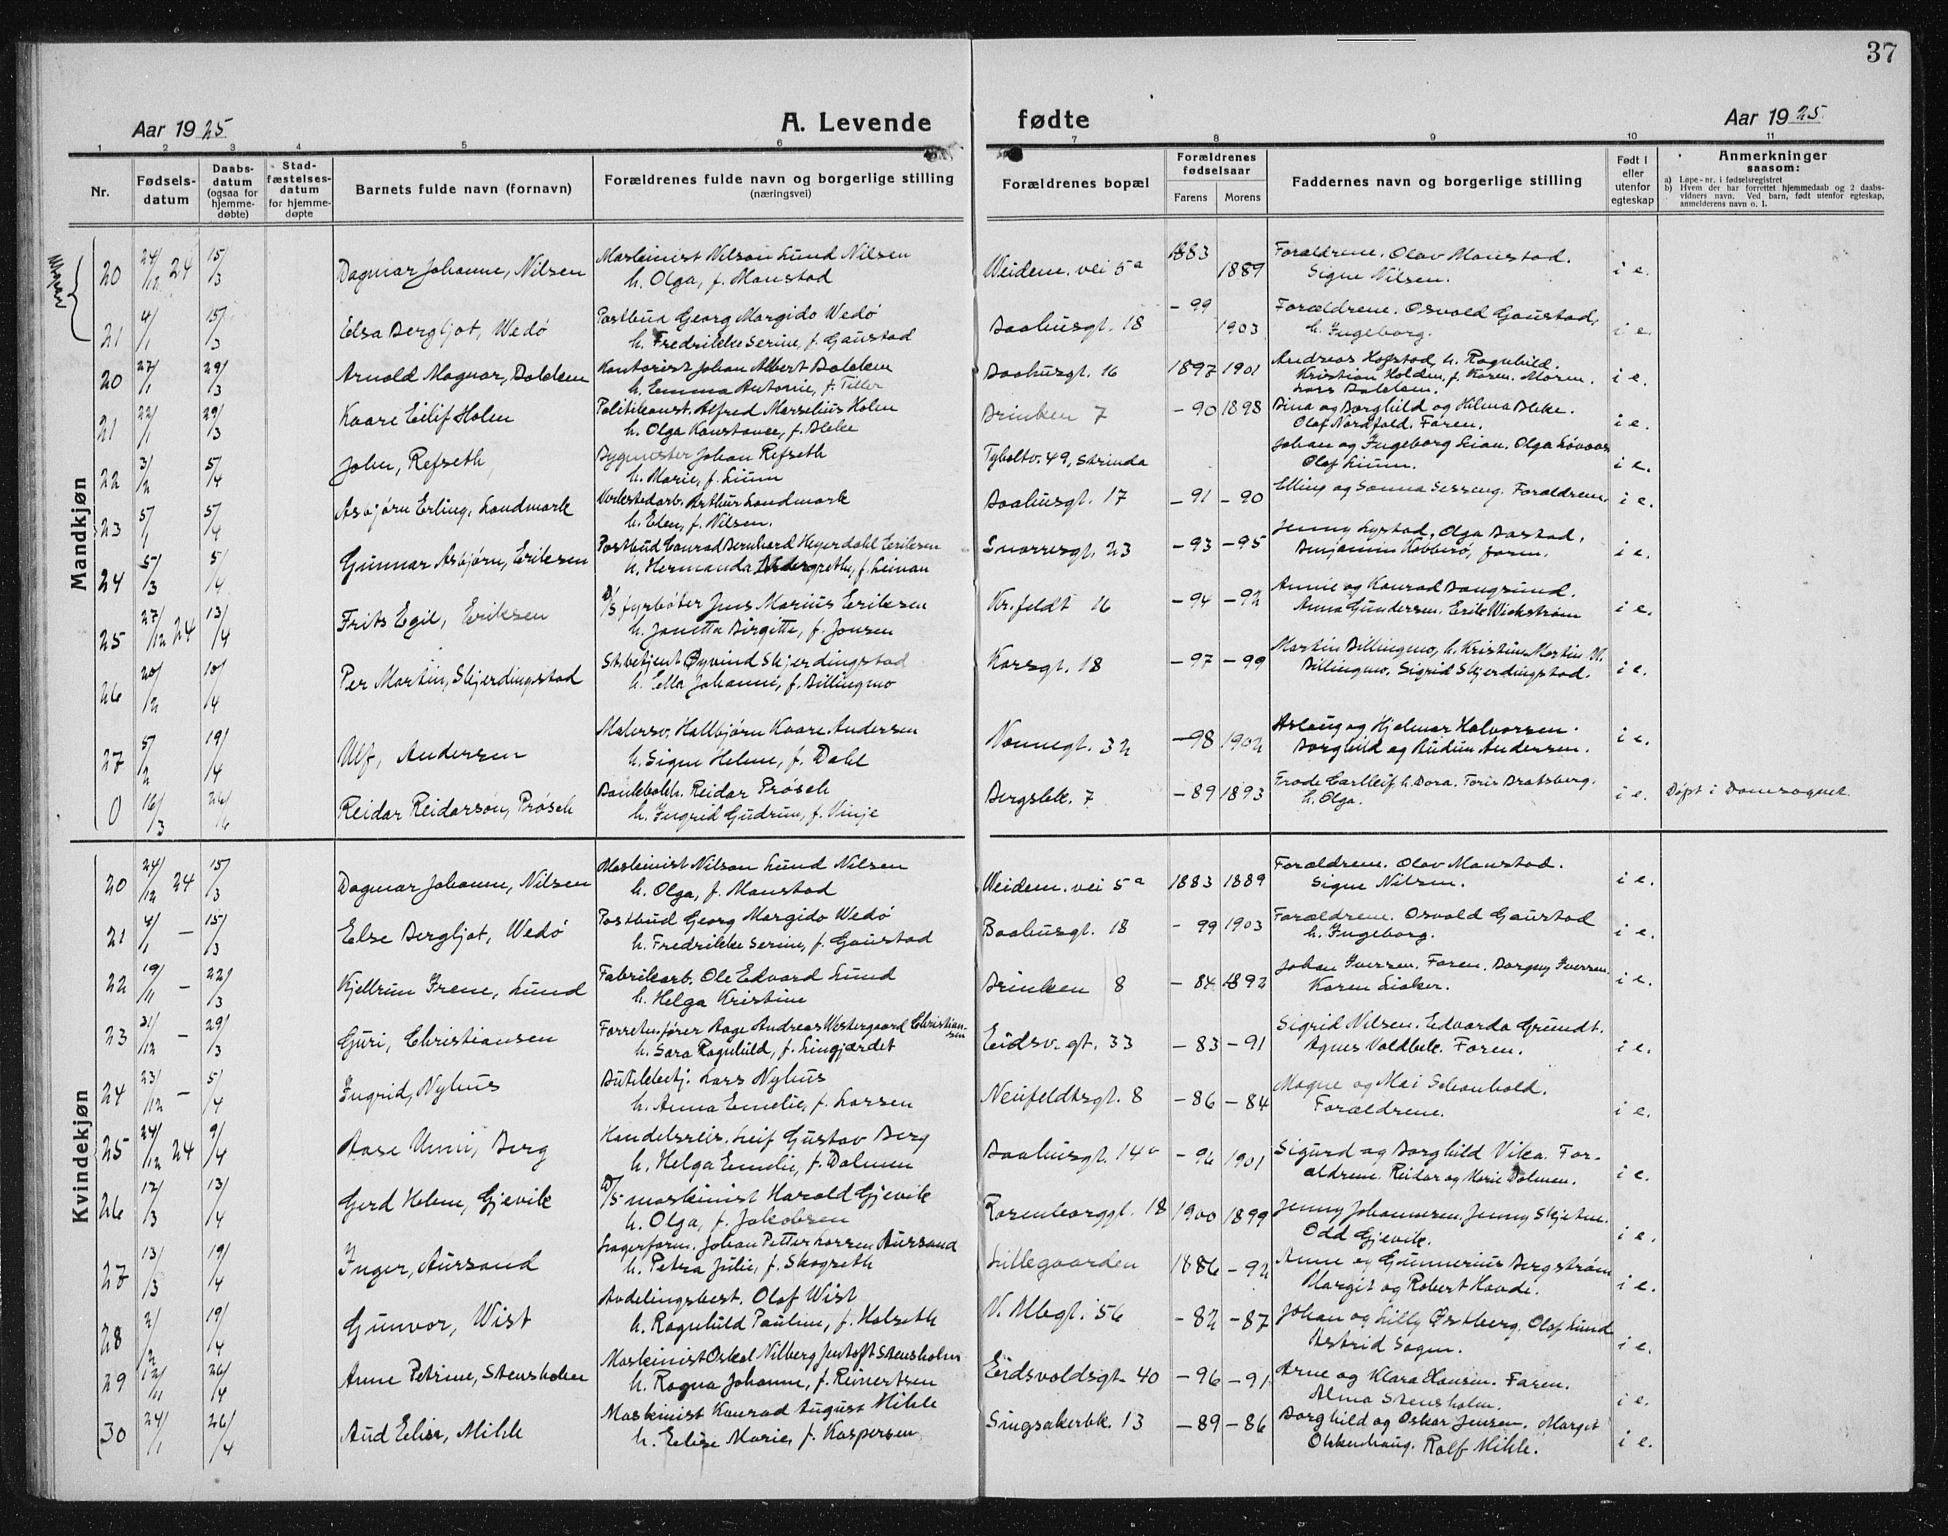 37
Aar 1925
A. Levende
fødte
Aar 1925.
1 2 3 4 5 6 7 8 9 10 11
Nr.
Fødsels-
datum
Daabs-
datum
(ogsaa for
hjemme-
døbte)
Stad-
fæstelses-
datum
for hjemme-
døpte
Barnets fulde navn (fornavn)
Forældrenes fulde navn og borgerlige stilling
(næringsvei)
Forældrenes bopæl
Forældrenes
fødselsaar
Farens Morens
Faddernes navn og borgerlige stilling
Født i
eller
utenfor
egteskap
Anmerkninger
saasom:
a) Løpe-nr. i fødselsregistret
b) Hvem der har forrettet hjemmedaab og 2 daabs-
vidners navn. Ved barn, født utenfor egteskap,
anmelderens navn o. l.
Mandkjøn
20 24/12 24 15/3 Dagmar Johanne, Nilsen Maskinist Nilson Lund Nilsen Weidem. vei 5a 1883 1889 Forældrene. Olav Monstad. i e.
h. Olga, f. Monstad Signe Nilsen.
21 4/1 15/3 Elsa Bergljot, Wedø Postbud Georg Margido Wedø Baahusgt. 18 -99 1903 Forældrene. Osvold Gaustad, i e.
h. Fredrikke Serine, f. Gaustad h. Ingeborg.
20 27/1 29/3 Arnold Magnar, Dolden Kontorist Johan Albert Dolden Baahusgt. 16 1897 1901 Andreas Hofstad, h. Ragnhild. i e.
h. Emma Antonie, f. Tiller Kristian Holden, f. Karen. Moren.
21 22/1 29/3 Kaare Eilif Holen Politikonst. Alfred Marselius Holen Brinken 7 -90 1898 Dina og Borghild og Helma Bleke. i e.
h. Olga Konstance, f. Bleke Olaf Nordfold. Faren.
22 3/2 5/4 John, Refseth Bygmester Johan Refseth Tyholtv. 49, Strinda Johan og Ingeborg Lian. Olga Løvaas i e.
h. Marie, f. Lium Olaf Lium.
23 5/1 5/4 Asbjørn Erling, Landmark Verkstedarb. Arthur Landmark Baahusgt. 17 -91 -90 Elling og Sanna Sesseng. Forældrene. i e.
h. Elen, f. Nilsen.
24 5/3 5/4 Gunnar Asbjørn, Eriksen Postbud Conrad Bernhard Heyerdahl Eriksen Snorresgt. 23 -93 -95 Jenny Lystad, Olga Bastad, i e.
h. Hermanda, f. Leinan Benjamin Kobberø, faren.
25 27/12 24 13/4 Frits Egil, Eriksen D/S fyrbøter Jens Marius Eriksen Kr.feldt 16 -94 -92 Annie og Konrad Bangrund. i e.
h. Janetta Birgitte, f. Jonsen Anna Gundersen. Erik Wickstrøm
26 20/2 10/4 Per Martin, Skjerdingstad St.betjent Øyvind Skjerdingstad Korsgt. 18 -97 -99 Martin Billingmo, h. Kristine Martin M. i e.
h. Ella Johanne, f. Billingmo Billingmo, Sigrid Skjerdingstad.
27 5/2 19/4 Ulf, Andersen Malersv. Hallbjørn Kaare Andersen Nonnegt. 32 -98 1902 Aslaug og Hjalmar Halvorsen. i e.
h. Signe Helene, f. Dahl Borghild og Audun Andersen.
0 16/3 26/6 Reidar Reidarsøn, Prøsch Bankbokh. Reidar Prøsch Bergsbk. 7 -89 1893 Frode Carlleif h. Dora. Toris Bratsberg. i e. Døpt i Domsognet
h. Ingrid Gudrun, f. Vinje h. Olga.
Kvindekjøn
20 24/12 24 15/3 Dagmar Johanne, Nilsen Maskinist Nilson Lund Nilsen Weidem. vei 5a 1883 1889 Forældrene. Olav Monstad. i e.
h. Olga, f. Monstad Signe Nilsen.
21 4/1 - 15/3 Else Bergljot, Wedø Postbud Georg Margido Wedø Baahusgt. 18 -99 1903 Forældrene. Osvold Gaustad i e.
h. Fredrikke Serine, f. Gaustad h. Ingeborg.
22 19/11 - 22/3 Kjellrun Irene, Lund Fabrikarb. Ole Edvard Lund Brinken 8 -84 1892 Johan Iversen. Faren. Borgny Iversen. i e.
h. Helga Kristine Karen Siaker.
23 31/12 - 29/3 Guri, Christiansen Forretn.fører Aage Andreas Westergaard Christian-sen Eidsv. gt. 33 -83 -91 Sigrid Nilsen. Edvarda Grundt. i e.
h. Sara Ragnhild, f. Lingjærdet Agnes Voldbek. Faren.
24 23/12 - 5/4 Ingrid, Nyhus Butikkbetj. Lars Nyhus Neufeldtsgt. 8 -86 -84 Magne og Mai Schonhold. i e.
h. Anna Emelie, f. Larsen Forældrene.
25 24/12 24 9/4 Aase Unni, Berg Handelsreis. Leif Gustav Berg Baahusgt. 14 -96 1901 Sigurd og Borghild Vika. For- i e.
h. Helga Emelie, f. Dalmen ældrene. Reidar og Marie Dalmen.
26 12/3 13/4 Gerd Helene, Gjevik D/S maskinist Harald Gjevik Rosenborggt. 18 1900 1899 Jenny Johannesen, Jenny Skjetne. i e.
h. Olga, f. Jakobsen Odd Gjevik.
27 13/3 19/4 Inger, Aursand Lagerform. Johan Petter Larsen Aursand Lillegaarden 1886 -92 Anne og Gunnerius Bergstrøm i e.
h. Petra Julie, f. Skogseth Margit og Robert Havde.
28 2/2 19/4 Gunvor, Wist Avdelingsbest. Olaf Wist V. Mbgt. 56 -82 -87 Johan og Lilly Østberg. Olaf Lund i e.
h. Ragnhild Pauline, f. Halseth Astrid Sagen.
29 12/11 26/4 Anne Petrine, Stensholm Maskinist Oskal Vilberg Jentoft Stensholm Eidsvoldsgt. 40 -96 -91 Arne og Klara Hansen. Faren. i e.
h. Ragna Johanne, f. Reinertsen Alma Stensholm.
30 24/1 26/4 Aud Elise, Mihle Maskinist Konrad August Mihle Singsakerbk. 13 -89 -86 Borghild og Oskar Jensen. Margit i e.
h. Elise Marie, f. Kaspersen Okkenhaug. Rolf Mihle.